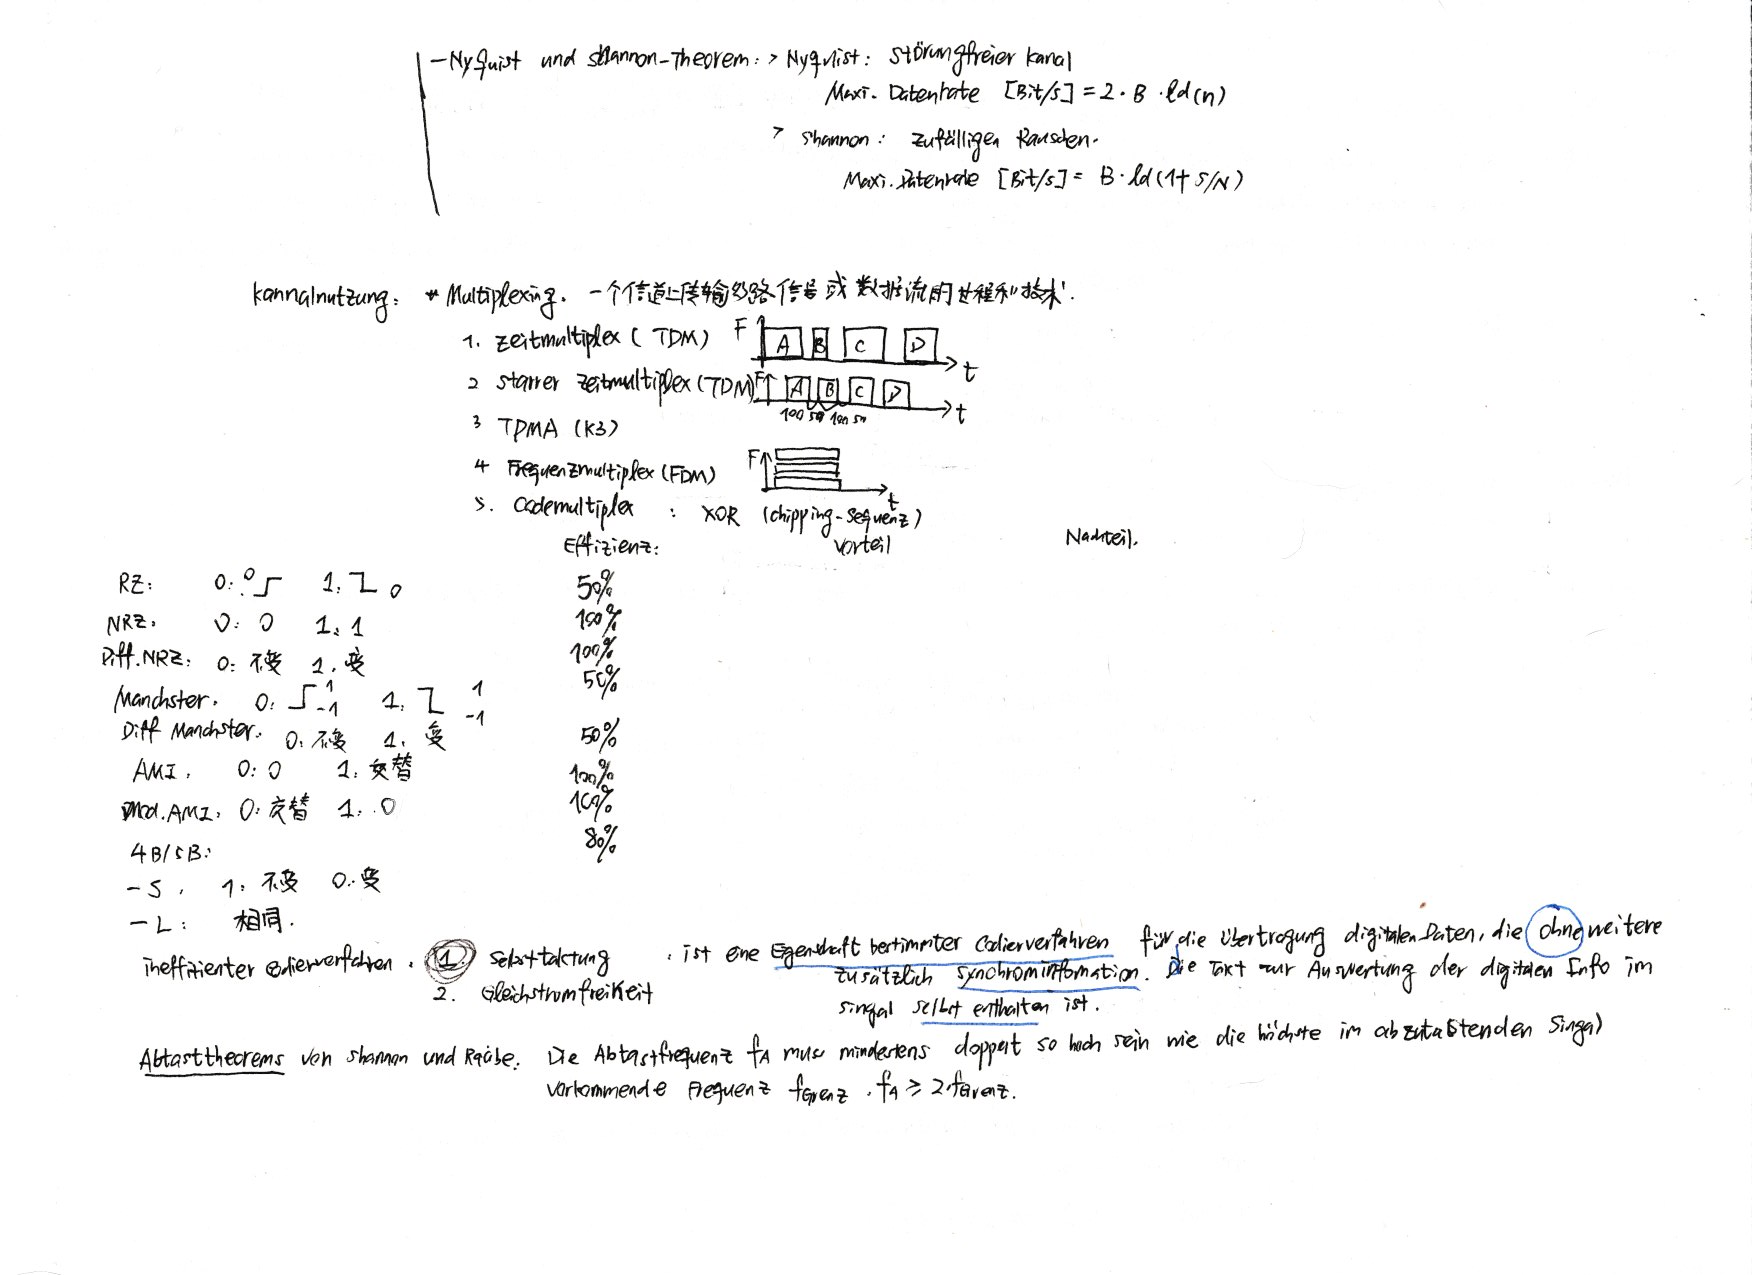 - Nyquist und Shannon-Theorem: > Nyquist: störungfreier Kanal
Maxi. Datenrate [Bit/s] = 2 · B · ld(n)
> Shannon: zufälligen Rauschen.
Maxi. Datenrate [Bit/s] = B · ld(1+ S/N)
Kannalnutzung: * Multiplexing. 一个信道上传输多路信号或数据流的过程和技术.
1. Zeitmultiplex (TDM) F A B C D t
2 Starrer Zeitmultiplex (TDM) F A B C D t
100 50 100 50
3 TDMA (K3)
4 Frequenzmultiplex (FDM) F t
5. Codemultiplex : XOR (chipping-Sequenz)
Effizienz: Vorteil Nachteil.
RZ: 0: 0 1: 0 50%
NRZ. 0: 0 1: 1 100%
Diff.NRZ: 0: 不变 1: 变 100%
Manchster. 0: 1 -1 1. 1 -1 50%
Diff Manchster. 0: 不变 1. 变 50%
AMI. 0: 0 1: 交替 100%
Mod.AMI. 0: 交替 1: 0 100%
4B/5B: 80%
- S. 1: 不变 0: 变
- L: 相同.
ineffizienter codierverfahren. 1. Selbsttaktung . ist eine Eigenschaft bestimmter Codierverfahren für die Übertragung digitalen Daten, die ohne weitere
zusätzlich Synchrominfomation. Die Takt zur Auswertung der digitalen Info im
2. Gleichstromfreiheit
Singal selbst enthalten ist.
Abtasttheorems von Shannon und Raabe. Die Abtastfrequenz fA muss mindestens doppelt so hoch sein wie die höchste im abzutastenden Singal
vorkommende Frequenz fGrenz . fA ≥ 2·fGrenz.